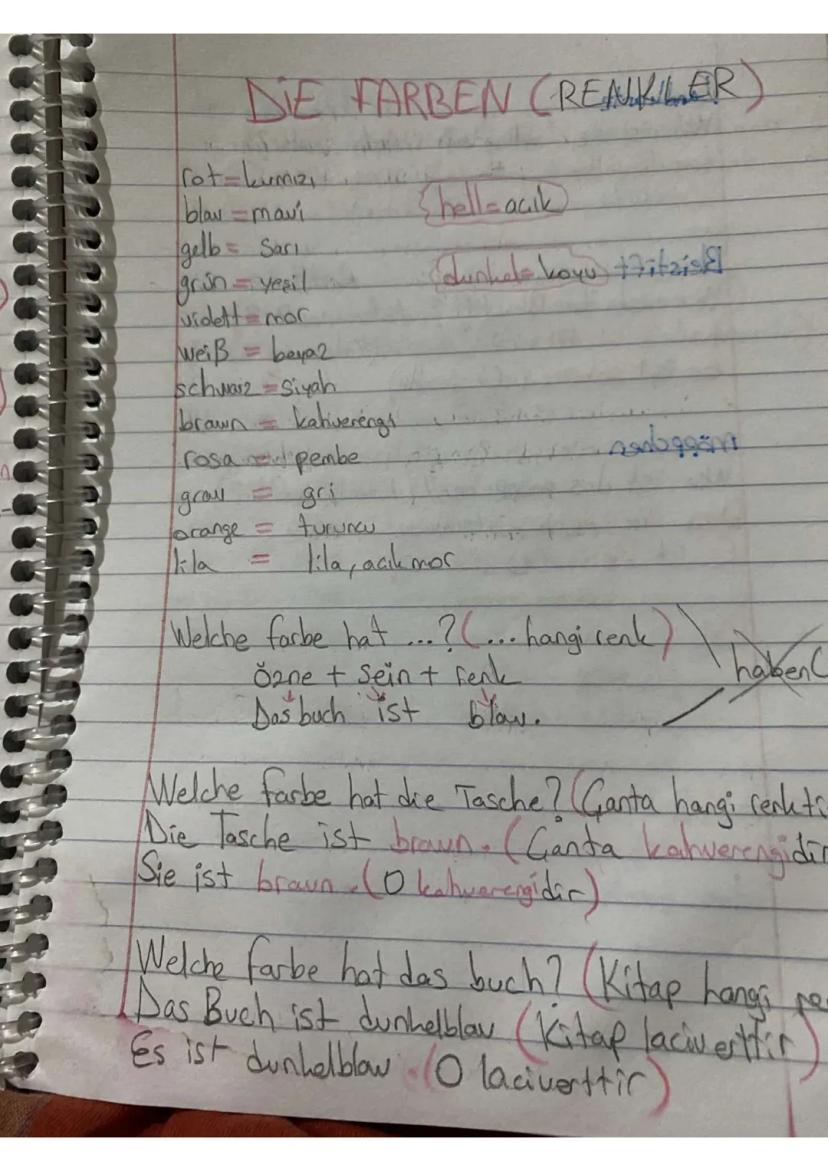 DİE FARBEN (RENKLER)
rot = kırmızı
blau = mavi
hell = acık
gelb = sarı
dunkel = koyu
Bleistift
grün = yeşil
violett = mor
weiß = beyaz
schwarz = siyah
braun = kahverengi
mögögben
rosa = pembe
grau = gri
orange = turuncu
lila = lila, acık mor
Welche farbe hat ...? (... hangi renk)
haben(
özne + sein + renk
Das buch ist blau.
Welche farbe hat die Tasche? (Çanta hangi renkti
Die Tasche ist braun. (Çanta kahverengidir
Sie ist braun. (O kahverengidir)
Welche farbe hat das buch? (Kitap hangi re
Das Buch ist dunkelblau (Kitap laciverttir)
Es ist dunkelblau. (O laciverttir)